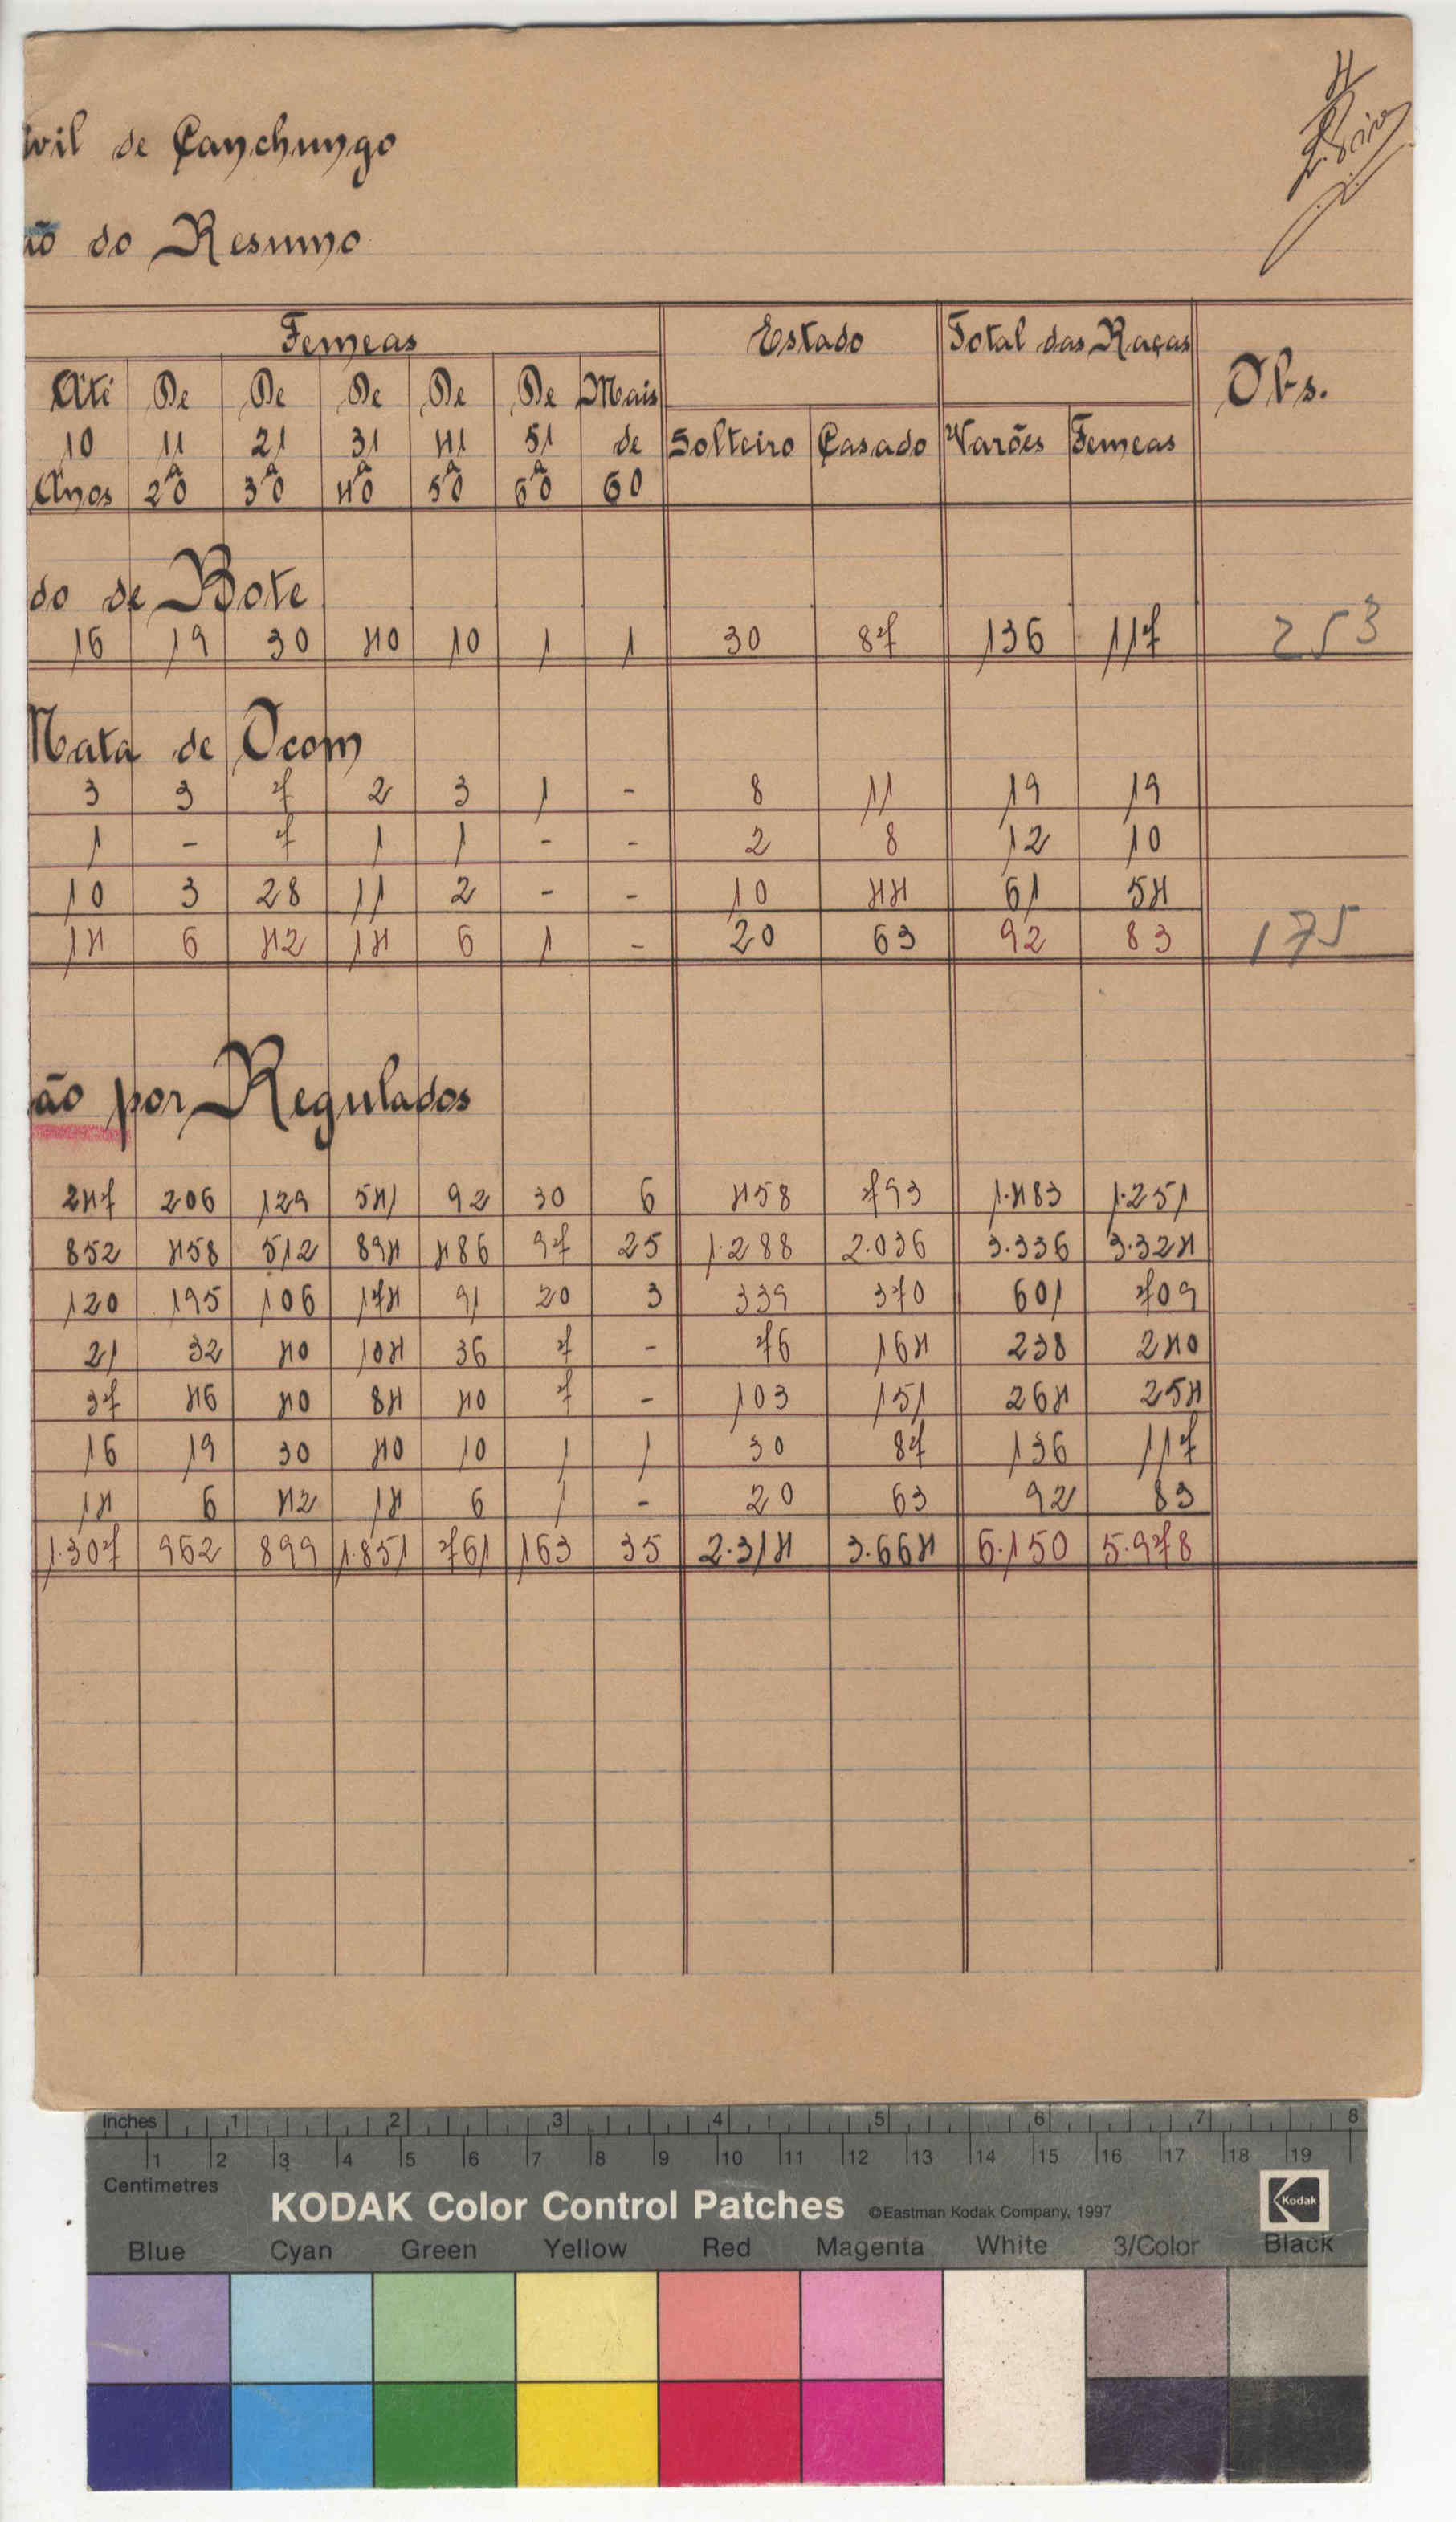 4
vil de Canchungo
ão do Resumo
Femeas Estado Total das Raças Obs.
Até De De De De De Mais
10 11 21 31 41 51 de Solteiro Casado Varões Femeas
Anos a 20 a 30 a 40 a 50 a 60 60
do de Bote
16 19 30 40 10 1 1 30 87 136 117 253
Mata de Ocom
3 3 7 2 3 1 - 8 11 19 19
1 - 7 1 1 - - 2 8 12 10
10 3 28 11 2 - - 10 44 61 54
14 6 42 14 6 1 - 20 63 92 83 175
ão por Regulados
247 206 129 541 92 30 6 458 793 1.483 1.251
852 458 512 894 486 97 25 1.288 2.036 3.336 3.324
120 195 106 174 91 20 3 339 370 601 709
21 32 40 104 36 7 - 76 164 238 240
37 46 40 84 40 7 - 103 151 264 254
16 19 30 40 10 1 1 30 87 136 117
14 6 42 14 6 1 - 20 63 92 83
1.307 962 899 1.851 761 163 35 2.314 3.664 6.150 5.978
Inches 1 2 3 4 5 6 7 8
1 2 3 4 5 6 7 8 9 10 11 12 13 14 15 16 17 18 19
Centimetres
KODAK Color Control Patches ©Eastman Kodak Company, 1997 Kodak
Blue Cyan Green Yellow Red Magenta White 3/Color Black